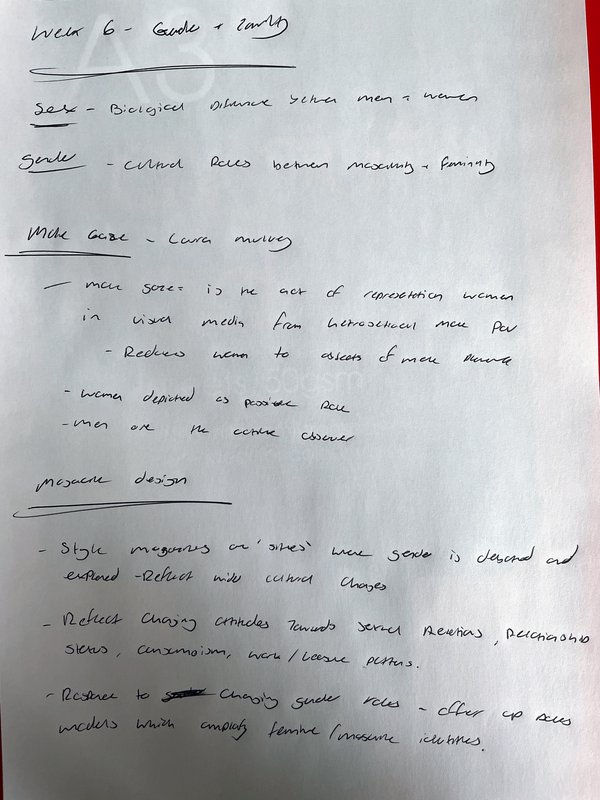 Week 6 - Gender +
Sex - Biological Difference between men + women
Gender - Cultural Roles between masculinity + femininity
Male Gaze - Laura Mulvey
- male gaze = is the act of representation women
in visual media from hetrosexual male POV
- Reduces women to objects of male
- Women depicted as passive role
- men are the active observer
Magazine design
- Style magazines are 'sites' where gender is debated and
explored - Reflect wider cultural changes
- Reflect changing attitudes towards sexual relations, relationship
status, consumerism, work / leisure patterns.
- Response to changing gender roles - offer up roles
models which amplify feminine / masculine identities.